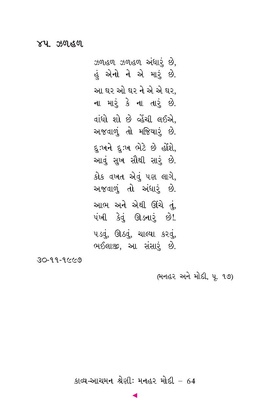 ૪૫. ઝળહળ
ઝળહળ ઝળહળ અંધારું છે,
હું એનો ને એ મારું છે.
આ ઘર ઓ ઘર ને એ એ ઘર,
ના મારું કે ના તારું છે.
વાંધો શો છે વ્હેંચી લઈએ,
અજવાળું તો મજિયારું છે.
દુઃખને દુઃખ ભેટે છે હોંશે,
આવું સુખ સૌથી સારું છે.
કોક વખત એવું પણ લાગે,
અજવાળું તો અંધારું છે.
આભ અને એથી ઊંચે તું,
પંખી કેવું ઊડનારું છે!
પડવું, ઊઠવું, ચાલ્યા કરવું,
ભઈલાજી, આ સંસારું છે.
૩૦-૧૧-૧૯૯૭
(મનહર અને મોદી, પૃ. ૧૭)
કાવ્ય-આચમન શ્રેણીઃ મનહર મોદી – 64